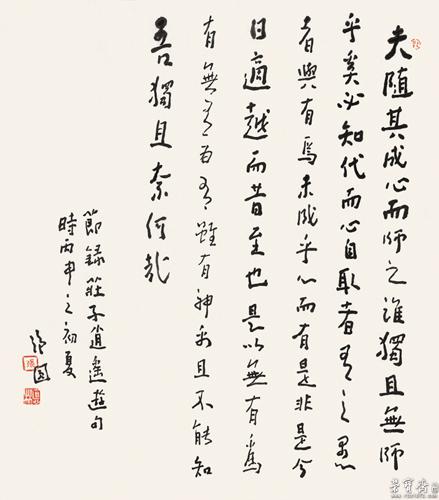 夫隨其成心而師之誰獨且無師
乎奚必知代而心自取者有之愚
者與有焉未成乎心而有是非是今
日適越而昔至也是以無有為
有無有為有雖有神禹且不能知
吾獨且奈何哉
節錄莊子逍遙遊句
時丙申之初夏